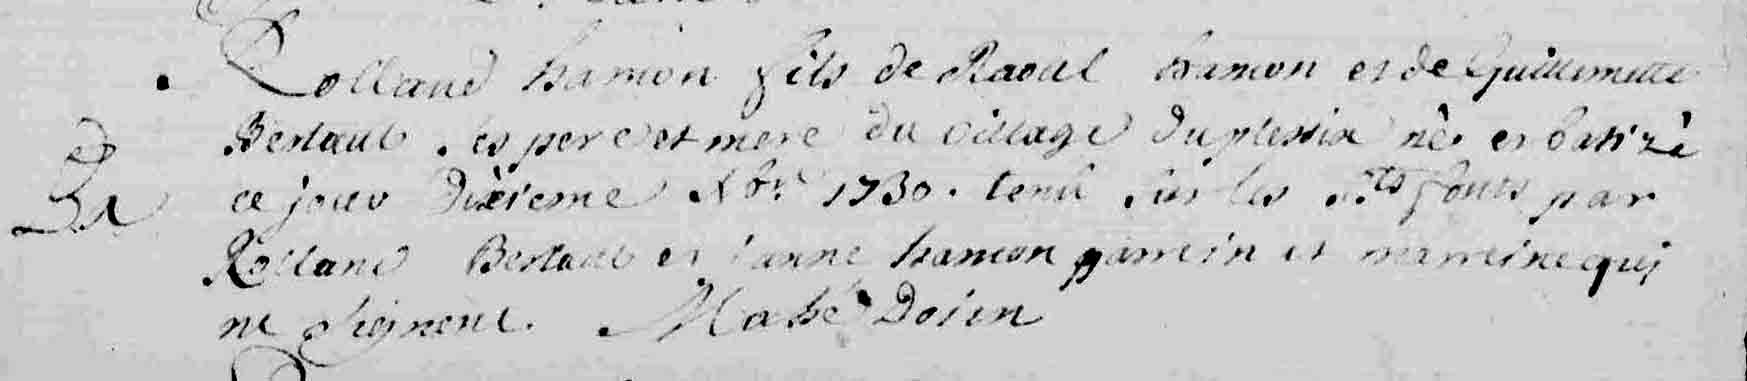 Rolland hamon fils de Raoul hamon et de Guillemette
Bertaul ses pere et mere du village du plessix né et batizé
ce jour dixieme Xbre 1730. tenu sur les sts fonts par
Rolland Bertaul et Janne hamon parrein et marreine qui
ne signent. Mahé Doien